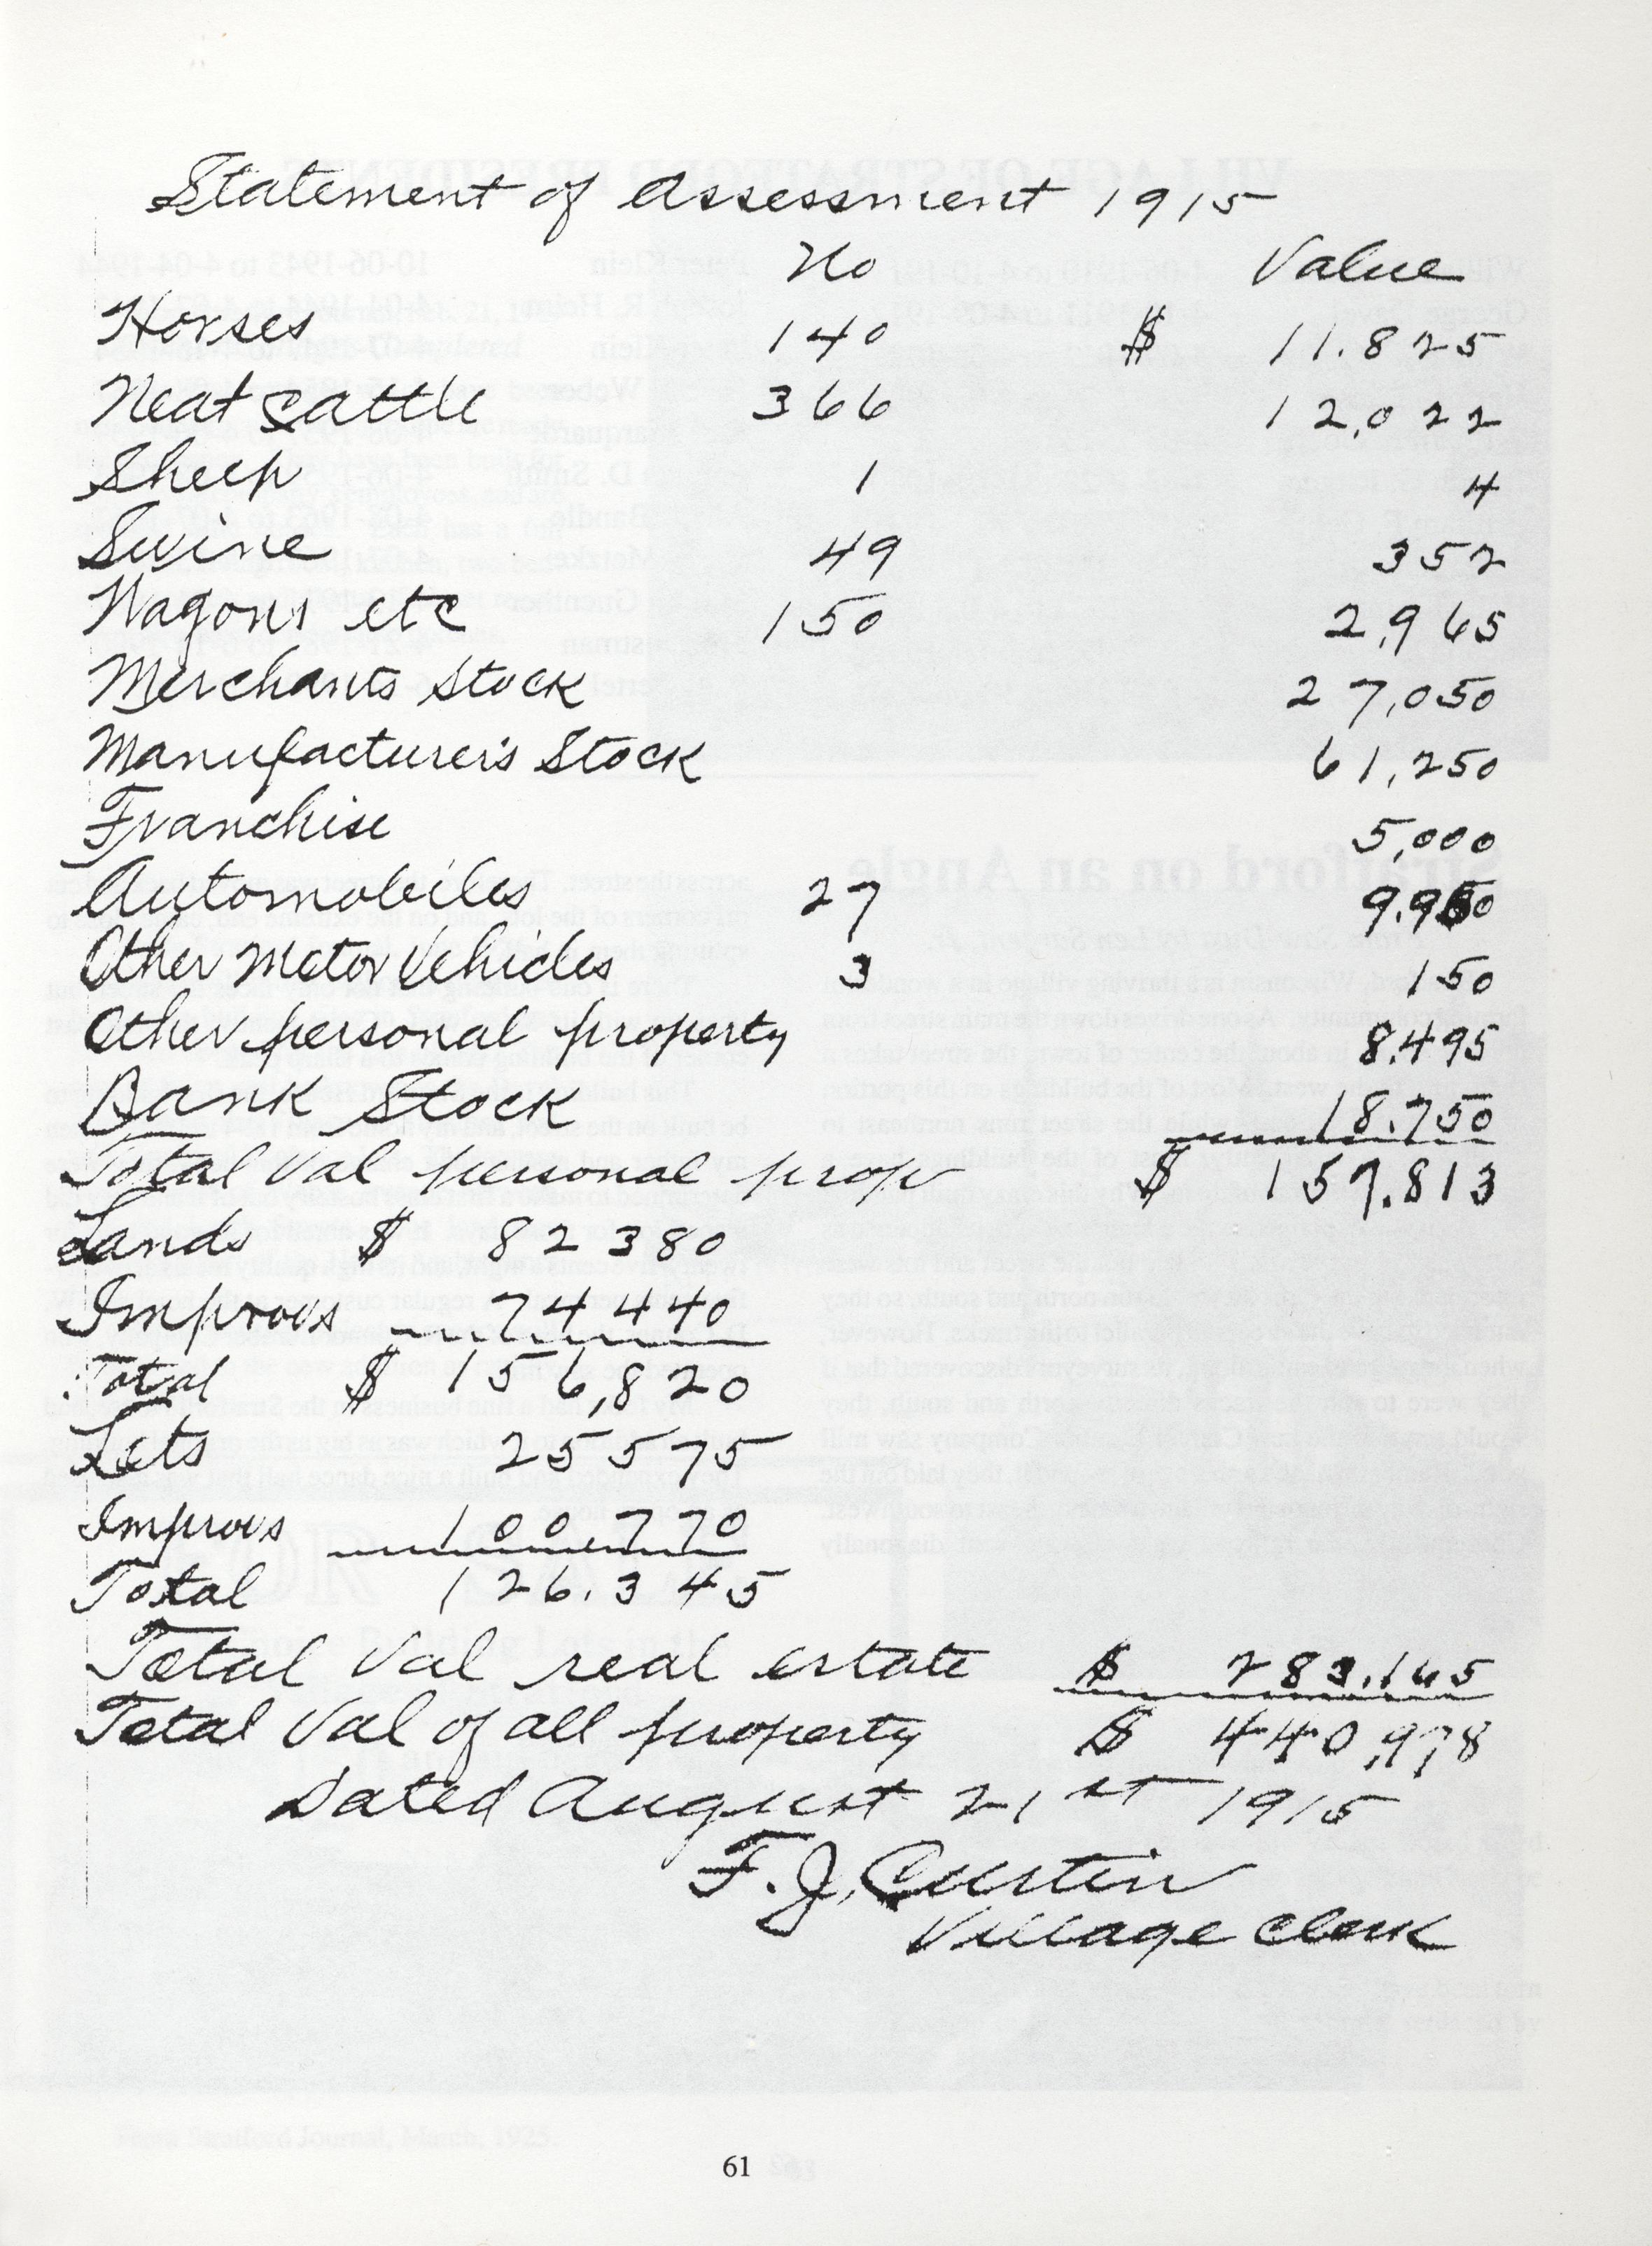 Statement of Assessment 1915
No Value
Horses 140 $ 11.825
Neat Cattle 366 12,022
Sheep 1 4
Swine 49 352
Wagons etc 150 2,965
Merchants Stock 27,050
Manufacturer's Stock 61,250
Franchise 5,000
Automobiles 27 9.950
Other Motor Vehicles 3 150
Other personal property 8.495
Bank Stock 18.750
Total Val personal prop $ 157.813
Lands $ 82380
Improvs 74440
Total $ 156,820
Lots 25575
Improvs 100770
Total 126.345
Total Val real estate $ 283.165
Total Val of all property $ 440,978
Dated August 21st 1915
F.J. Curtin
Village Clerk
61